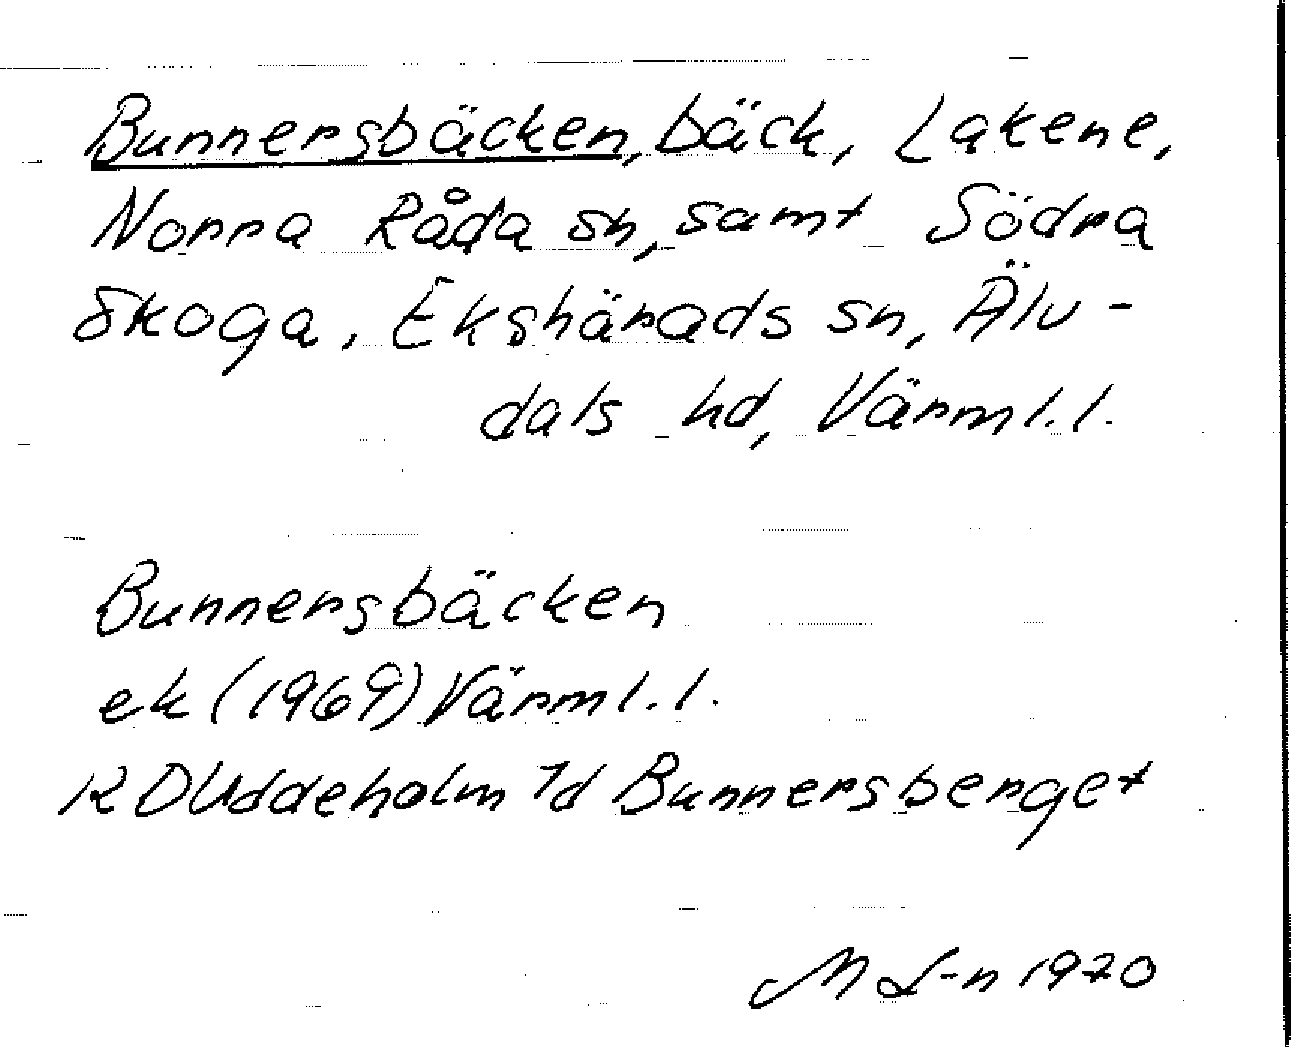 Bunnersbäcken, bäck, Lakene,
Norra Råda sn, samt Södra
Skoga, Ekshärads sn, Älv-
dals hd, Värml.l.
Bunnersbäcken
ek (1969) Värml.l.
12 D Uddeholm 7d Bunnersberget
M L-n 1970